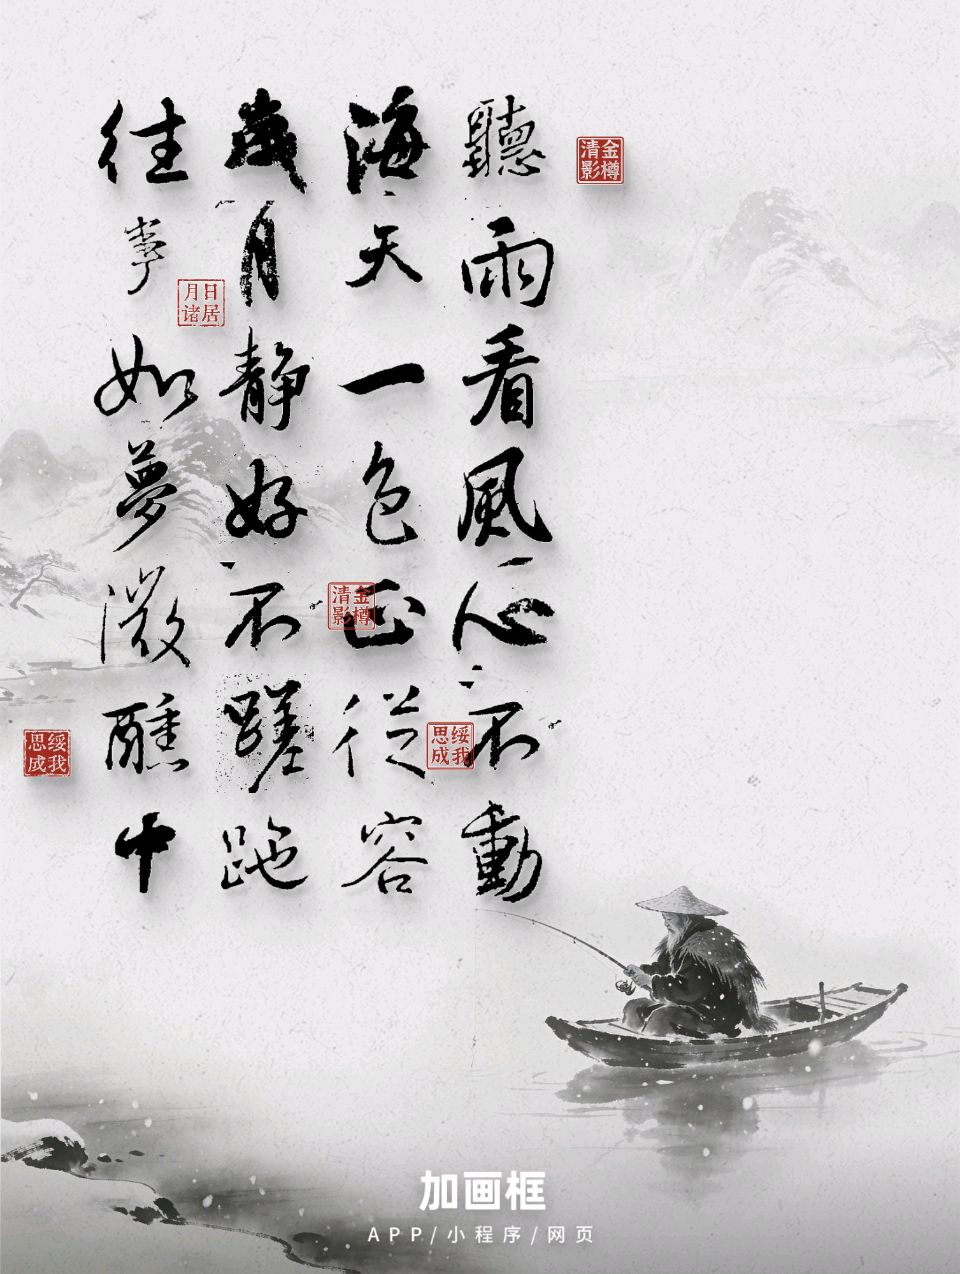 聽雨看風心不動
海天一色正從容
歲月靜好不蹉跎
往事如夢微醺中
金樽清影
日居月诸
金樽清影
绥我思成
绥我思成
加画框
APP/小程序/网页